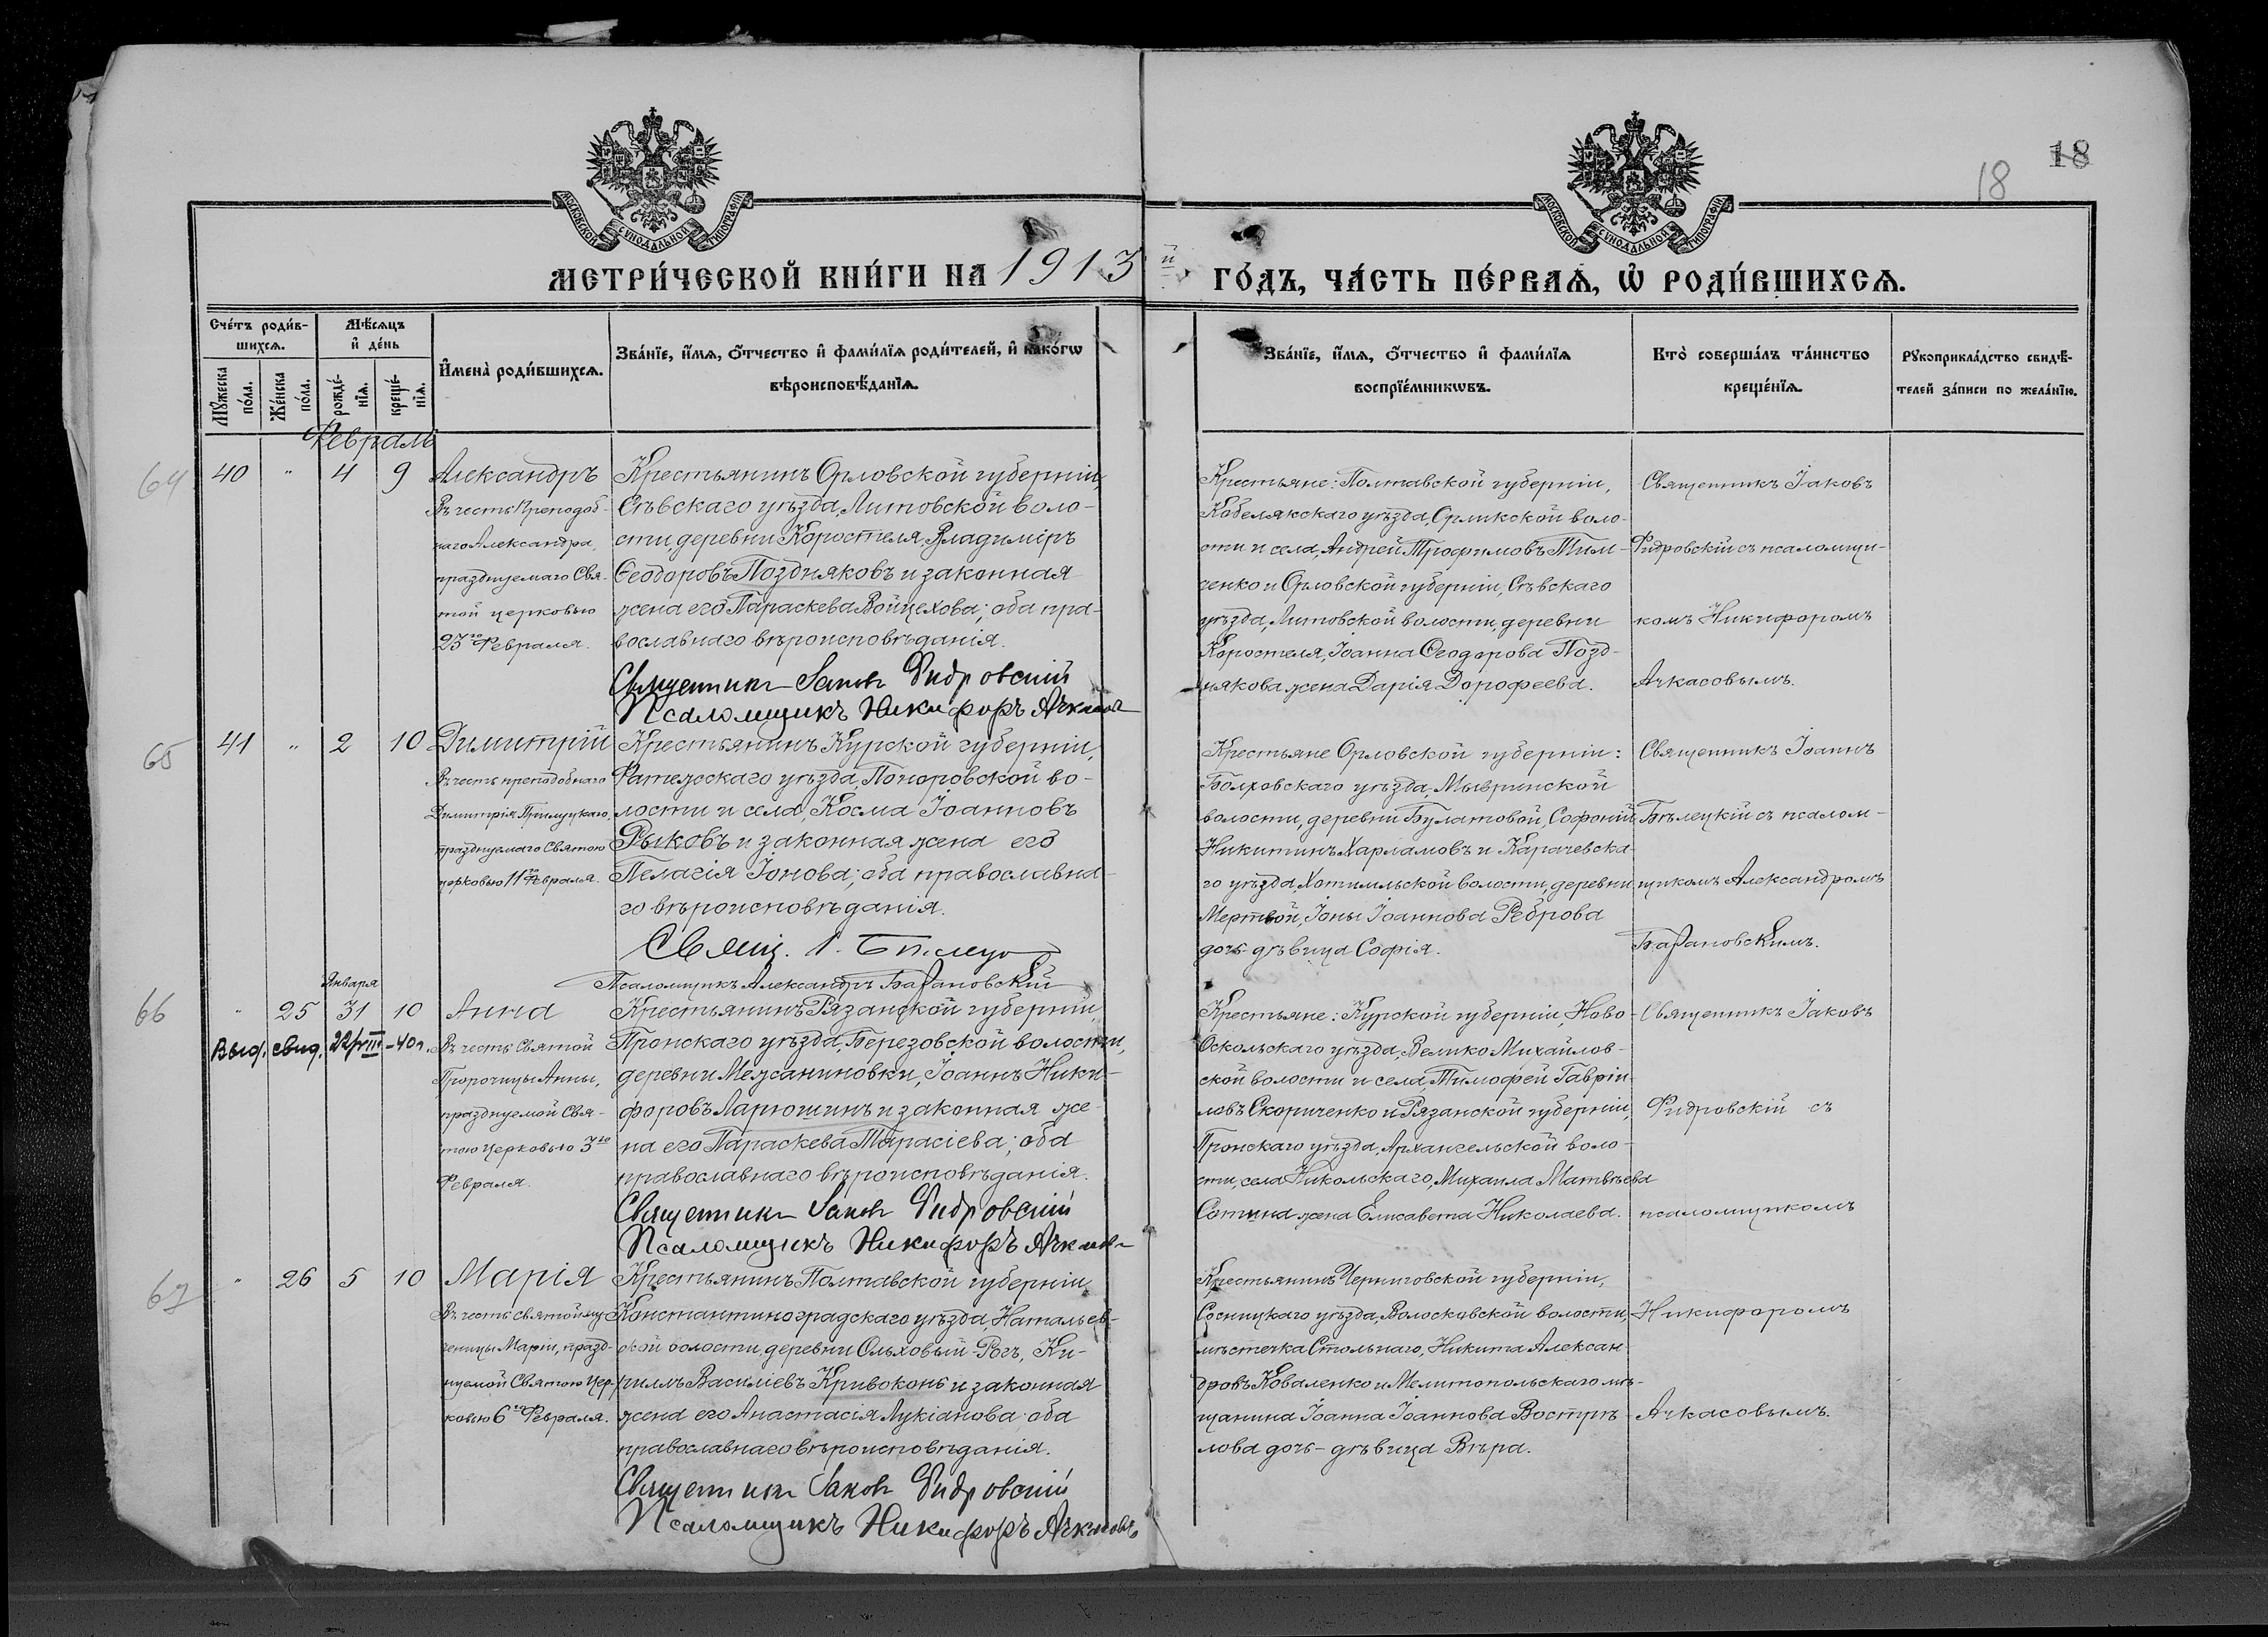 МОСКОВСКОЙ СУНОДАЛЬНОЙ ТИПОГРАФІИ
МОСКОВСКОЙ СУНОДАЛЬНОЙ ТИПОГРАФІИ
18
18
МЕТРИ́ЧЕСКОЙ КНИ́ГИ НА 1913 й ГО́ДЪ, ЧА́СТЬ ПЕ́РВАѦ, Ѡ РОДИ́ВШИХСѦ.
Сче́тъ роди́в-
шихсѧ.
Мꙋжеска по́ла.
Же́нска по́ла.
Мѣ́сѧцъ
и де́нь
рожде́-нїѧ.
креще́-нїѧ.
И҆мена̀ роди́вшихсѧ.
Зва́нїе, и҆́мѧ, ѻ҆́тчество и҆ фами́лїѧ роди́телей, и҆ како́гѡ
вѣроисповѣ́данїѧ.
Зва́нїе, и҆́мѧ, ѻ҆́тчество и҆ фами́лїѧ
воспрїе́мникѡвъ.
Кто̀ соверша́лъ та́инство
креще́нїѧ.
Рꙋкоприкла́дство свидѣ́-
телей за́писи по жела́нїю.
Февраль
64
40 " 4 9
Александръ
Въ честь Преподоб-
наго Александра,
празднуемаго Свя-
той церковью
23го Февраля.
Крестьянинъ Орловской губерніи,
Сѣвскаго уѣзда, Литовской воло-
сти, деревни Коростеля, Владиміръ
Ѳеодоровъ Поздняковъ и законная
жена его Параскева Войцехова; оба пра-
вославнаго вѣроисповѣданія.
Священникъ Іаковъ Фидровскій
Псаломщикъ Никифоръ Ачкасовъ
Крестьяне: Полтавской губерніи,
Кобелякскаго уѣзда, Орликской воло-
сти и села, Андрей Трофимовъ Тим-
ченко и Орловской губерніи, Сѣвскаго
уѣзда, Литовской волости, деревни
Коростеля, Іоанна Ѳеодорова Позд-
някова жена Дарія Дорофеева.
Священникъ Іаковъ
Фидровскій съ псаломщи-
комъ Никифоромъ
Ачкасовымъ.
65
41 " 2 10
Димитрій
Въ честь преподобнаго
Димитрія Прилуцкаго,
празднуемаго Святою
церковью 11го Февраля.
Крестьянинъ Курской губерніи,
Фатежскаго уѣзда, Поныровской во-
лости и села, Косма Іоанновъ
Рыковъ и законная жена его
Пелагія Іонова; оба православна-
го вѣроисповѣданія.
Свящ. І. Бѣлецк
Псаломщикъ Александръ Барановскій
Крестьяне Орловской губерніи:
Болховскаго уѣзда, Мывринской
волости, деревни Булатовой, Софоній
Никитинъ Харламовъ и Карачевска-
го уѣзда, Хотимльской волости, деревни
Мертвой, Іоны Іоаннова Реброва
дочь-дѣвица Софія.
Священникъ Іоаннъ
Бѣлецкій съ псалом-
щикомъ Александромъ
Барановскимъ.
66
Января
" 25 31 10
Выд. свид. 22/VIII-40г.
Анна
Въ честь Святой
Пророчицы Анны,
празднуемой Свя-
тою Церковью 3го
Февраля.
Крестьянинъ Рязанской губерніи,
Пронскаго уѣзда, Березовской волости,
деревни Межаниновки, Іоаннъ Ники-
форовъ Ларюшинъ и законная же-
на его Параскева Тарасіева; оба
православнаго вѣроисповѣданія.
Священникъ Іаковъ Фидровскій
Псаломщикъ Никифоръ Ачкасов
Крестьяне: Курской губерніи, Ново-
Оскольскаго уѣзда, Велико Михайлов-
ской волости и села, Тимофей Гаврiи-
ловъ Скориченко и Рязанской губерніи,
Пронскаго уѣзда, Архангельской воло-
сти, села Никольскаго, Михаила Матвѣева
Сотина жена Елисавета Николаева.
Священникъ Іаковъ
Фидровскій съ
псаломщикомъ
67
" 26 5 10
Марія
Въ честь Святой му-
ченицы Маріи, празд-
нуемой Святою Цер-
ковью 6го Февраля.
Крестьянинъ Полтавской губерніи,
Константиноградскаго уѣзда, Натальев-
ской волости, деревни Ольховый-Рогъ, Ки-
риллъ Василіевъ Кривоконь и законная
жена его Анастасія Лукіанова; оба
православнаго вѣроисповѣданія.
Священникъ Іаковъ Фидровскій
Псаломщикъ Никифоръ Ачкасовъ
Крестьянинъ Черниговской губерніи,
Сосницкаго уѣзда, Волосковской волости,
мѣстечка Стольнаго, Никита Алексан-
дровъ Коваленко и Мелитопольскаго мѣ-
щанина Іоанна Іоаннова Вострѣ-
лова дочь-дѣвица Вѣра.
Никифоромъ
Ачкасовымъ.